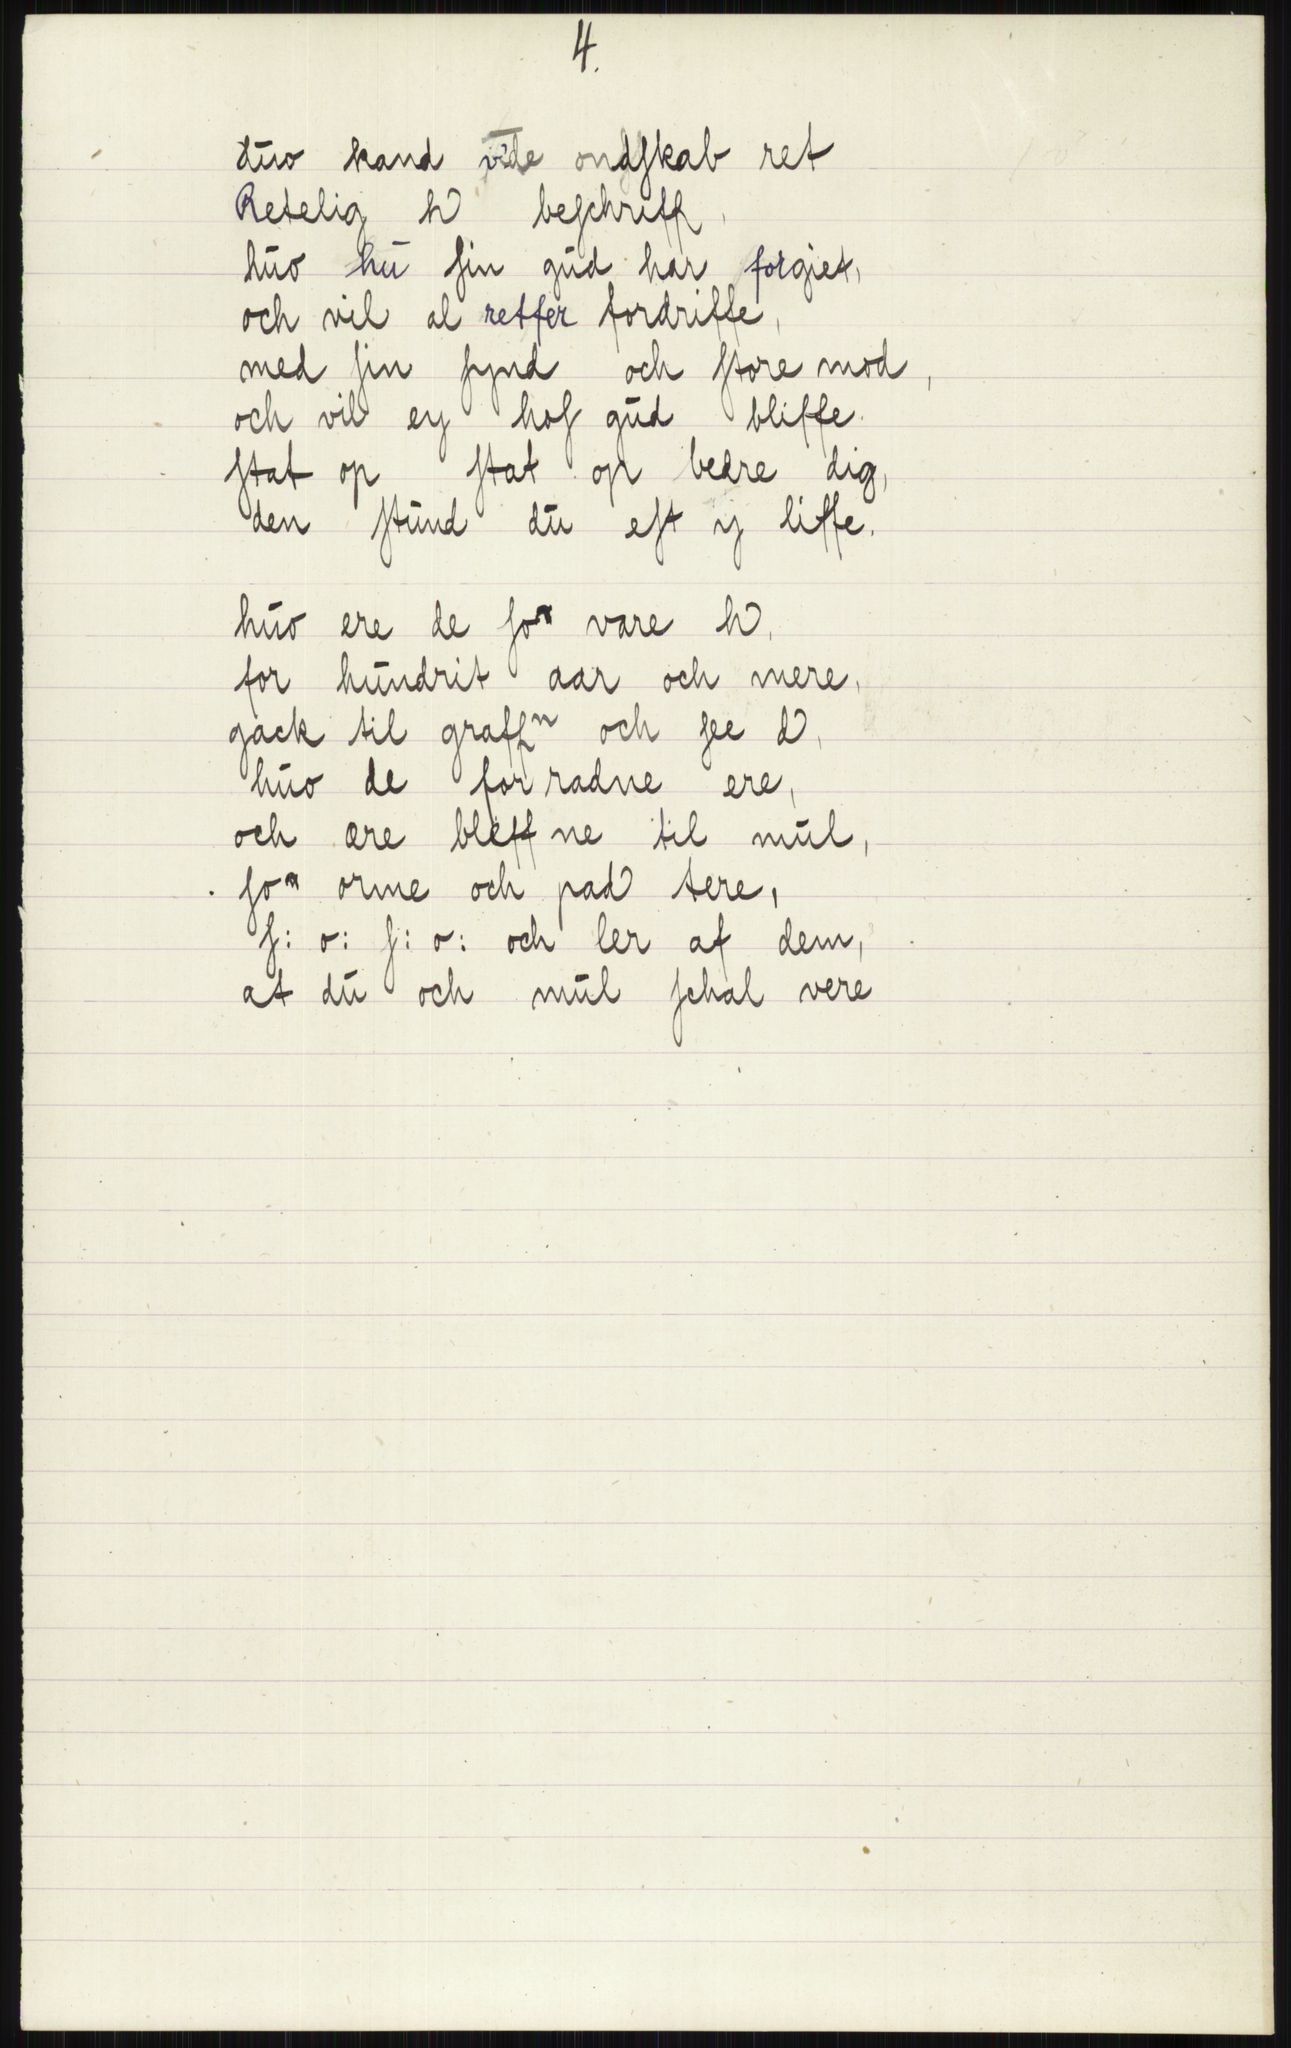 4.
huo kand vide ondſkab ret
Retelig h beſchriff,
huo hū ſin gud har forgiet,
och vil al retfer fordriffe,
med ſin ſynd och ſtore mod,
och vil ey hoſ gud bliffe.
ſtat op ſtat op bedre dig,
den ſtund du eſt y liffe.
huo ere de ſom vare h,
for hundrit aar och mere,
gack til graffn och ſee d,
huo de forradne ere,
och ære bleffne til mul,
ſom orme och pad tere,
ſ: o: ſ: o: och ler af dem,
at du och mul ſchal vere